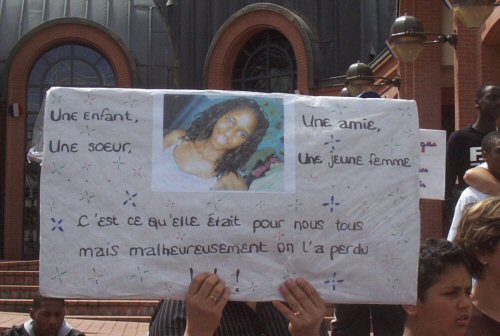 Une enfant,
Une soeur,
Une amie,
Une jeune femme
C'est ce qu'elle était pour nous tous
mais malheureusement on l'a perdu
!!!